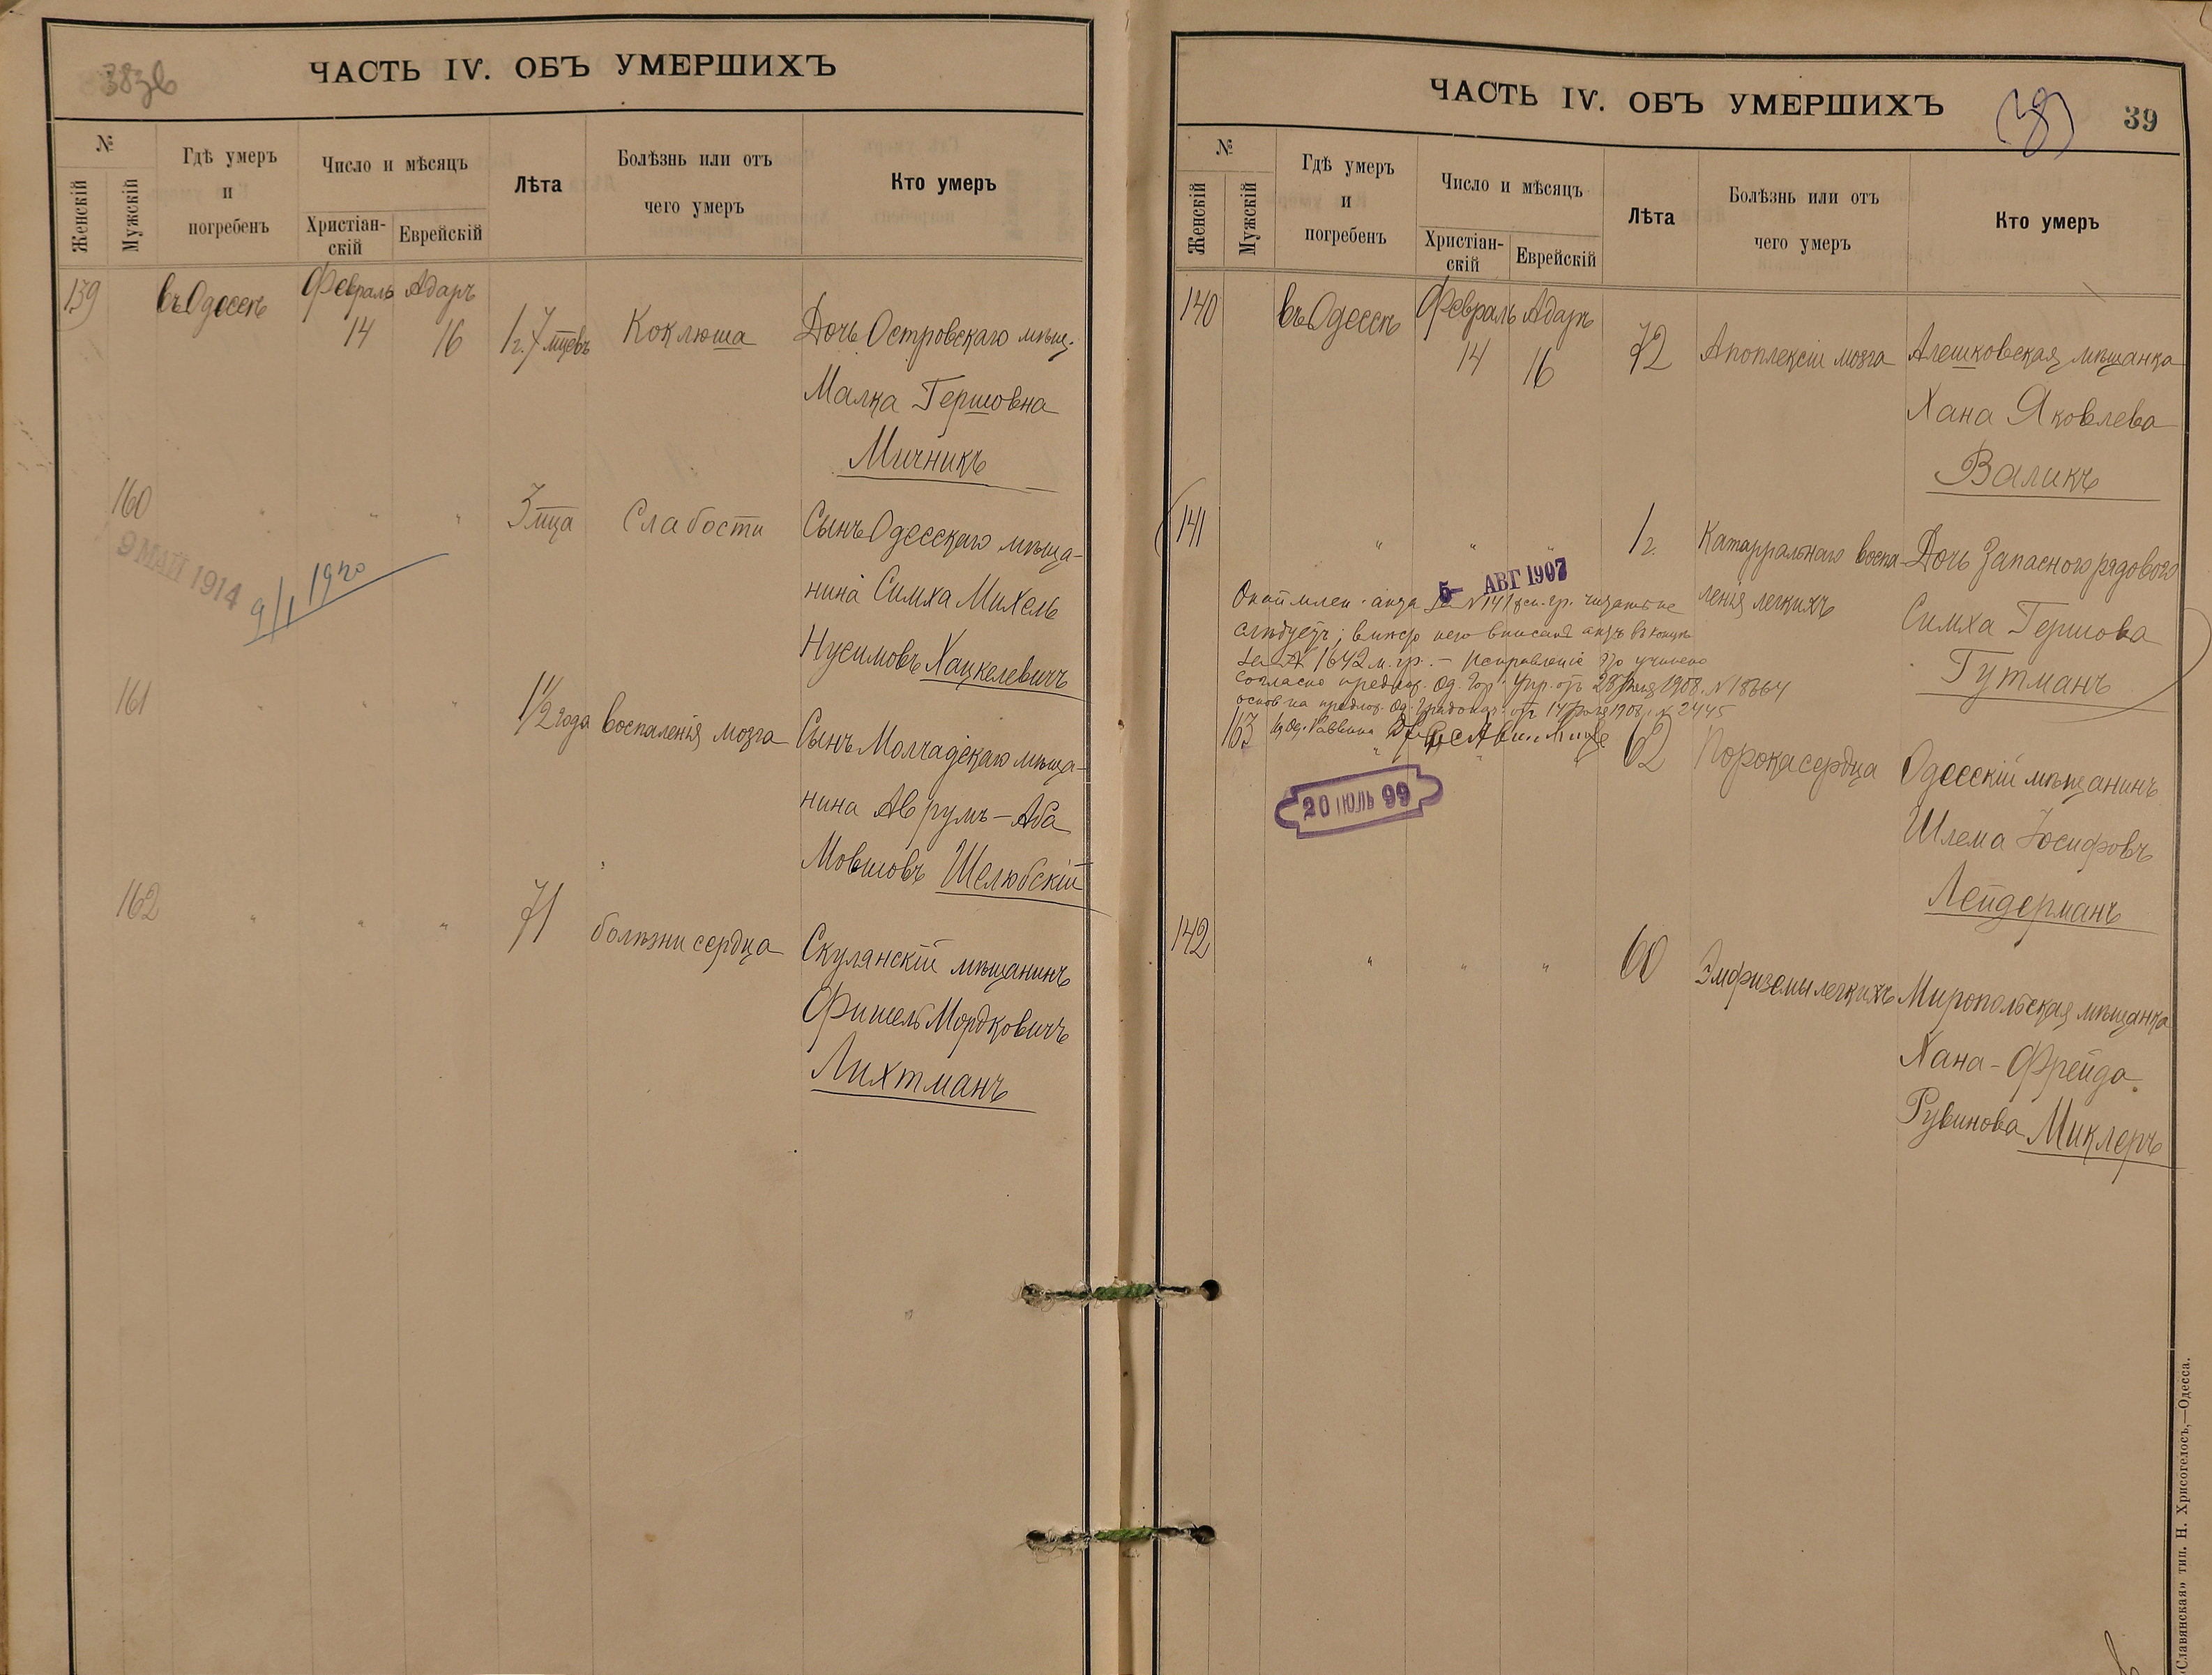 383б
ЧАСТЬ IV. ОБЪ УМЕРШИХЪ
№
Женскій
Мужскій
Гдѣ умеръ
и
погребенъ
Число и мѣсяцъ
Христіан-
скій
Еврейскій
Лѣта
Болѣзнь или отъ
чего умеръ
Кто умеръ
139 въ Одессѣ Февраль Адаръ
14 16 1 г. 7 мцевъ Коклюша Дочь Островскаго мѣщ.
Малка Гершовна
Мичникъ
160 " " " 3 мца Слабости Сынъ Одесскаго мѣща-
9 МАЙ 1914
9/I 1920
нина Симха Михель
Нусимовъ Хацкелевичъ
161 " " " 1 1/2 года воспаленія мозга Сынъ Молчадскаго мѣща-
нина Аврумъ-Аба
Мовшовъ Шелюбскій
162 " " " 71 болѣзни сердца Скулянскій мѣщанинъ
Фишель Мордковичъ
Лихтманъ
ЧАСТЬ IV. ОБЪ УМЕРШИХЪ
39
№
Женскій
Мужскій
Гдѣ умеръ
и
погребенъ
Число и мѣсяцъ
Христіан-
скій
Еврейскій
Лѣта
Болѣзнь или отъ
чего умеръ
Кто умеръ
140 въ Одессѣ Февраль Адаръ
14 16 72 Апоплексіи мозга Алешковская мѣщанка
Хана Яковлева
Валикъ
141 " " " 1 г. Катарральнаго воспа-
ленія легкихъ
Дочь Запасного рядового
Симха Гершова
Гутманъ
5- АВГ 1907
акта за № 141 жен. гр. читать не
слѣдуетъ; вмѣсто него вписанъ актъ въ концѣ
за № 1642 м. гр. – Исправленіе это учинено
согласно предлож. Од. Гор. Упр. отъ 28 1908 г. № 18664
основ. на предлож. Од. Градонач. отъ 14 1908 г. № 2445
Од. Раввинъ
163 " " 62 Порока сердца Одесскій мѣщанинъ
Шлема Іосифовъ
Лейдерманъ
20 ІЮЛЬ 99
142 " " " 60 Эмфиземы легкихъ Миропольская мѣщанка
Хана-Фрейда
Рувинова Миклеръ
«Славянская» тип. Н. Хрисогелосъ,—Одесса.